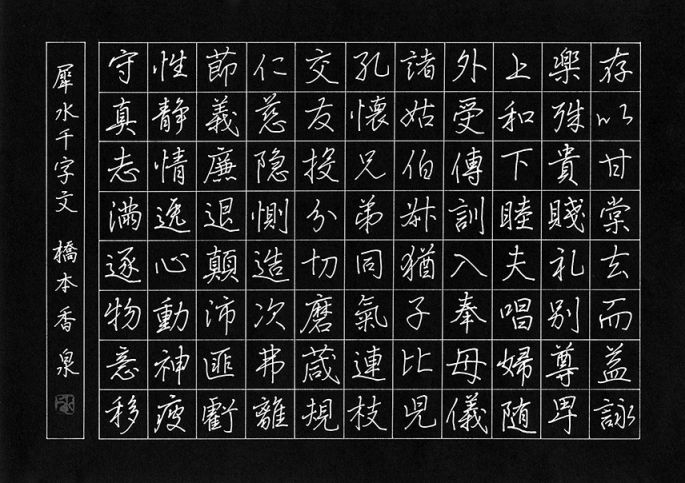 存以甘棠去而益詠
樂殊貴賤礼別尊卑
上和下睦夫唱婦随
外受傅訓入奉母儀
諸姑伯叔猶子比児
孔懐兄弟同氣連枝
交友投分切磨葴規
仁慈隐惻造次弗離
節義廉退顛沛匪虧
性静情逸心動神疲
守真志滿逐物意移
犀水千字文 橋本香泉